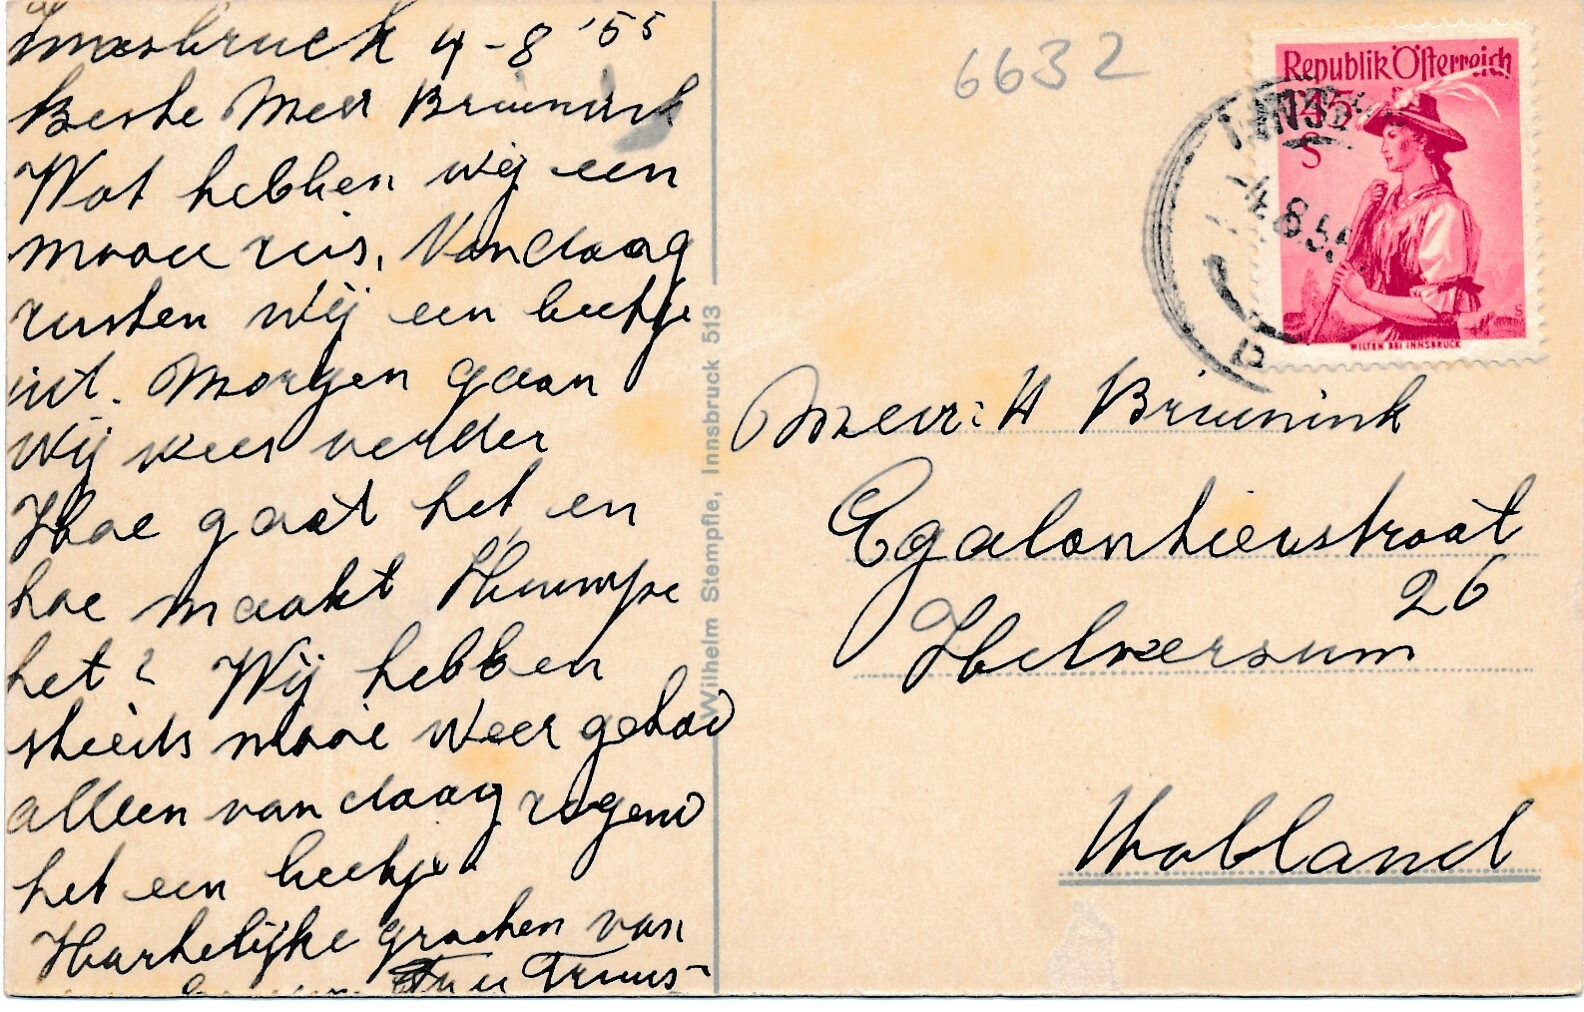 Innsbruck 4-8 '55
Beste Meer Bruinink
Wat hebben wij een
mooie reis, Vandaag
rusten wij een beetje
uit. Morgen gaan
wij weer verder
Hoe gaat het en
hoe maakt
het? Wij hebben
steeds mooie weer gehad
alleen vandaag regend
het een beetje
Hartelijke groeten van
Truus
Wilhelm Stempfle, Innsbruck 513
6632
Republik Österreich
1.45
S
WILTEN BEI INNSBRUCK
4.8.55
Meur: H Bruinink
Egalantierstraat
26
Hilversum
Holland